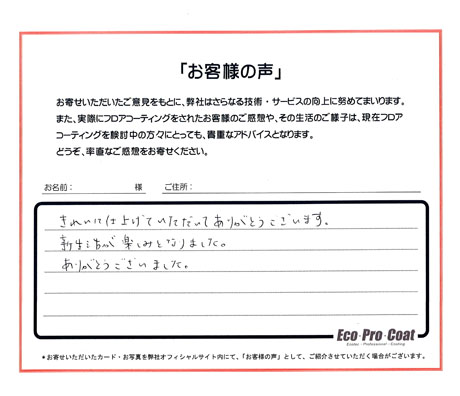 「お客様の声」
お寄せいただいたご意見をもとに、弊社はさらなる技術・サービスの向上に努めてまいります。
また、実際にフロアコーティングをされたお客様のご感想や、その生活のご様子は、現在フロア
コーティングを検討中の方々にとっても、貴重なアドバイスとなります。
どうぞ、率直なご感想をお寄せください。
お名前： 様 ご住所：
きれいに仕上げていただいてありがとうございます。
新生活が楽しみとなりました。
ありがとうございました。
Eco・Pro・Coat
Ecolor・Professional・Coating
＊お寄せいただいたカード・お写真を弊社オフィシャルサイト内にて、「お客様の声」として、ご紹介させていただく場合がございます。